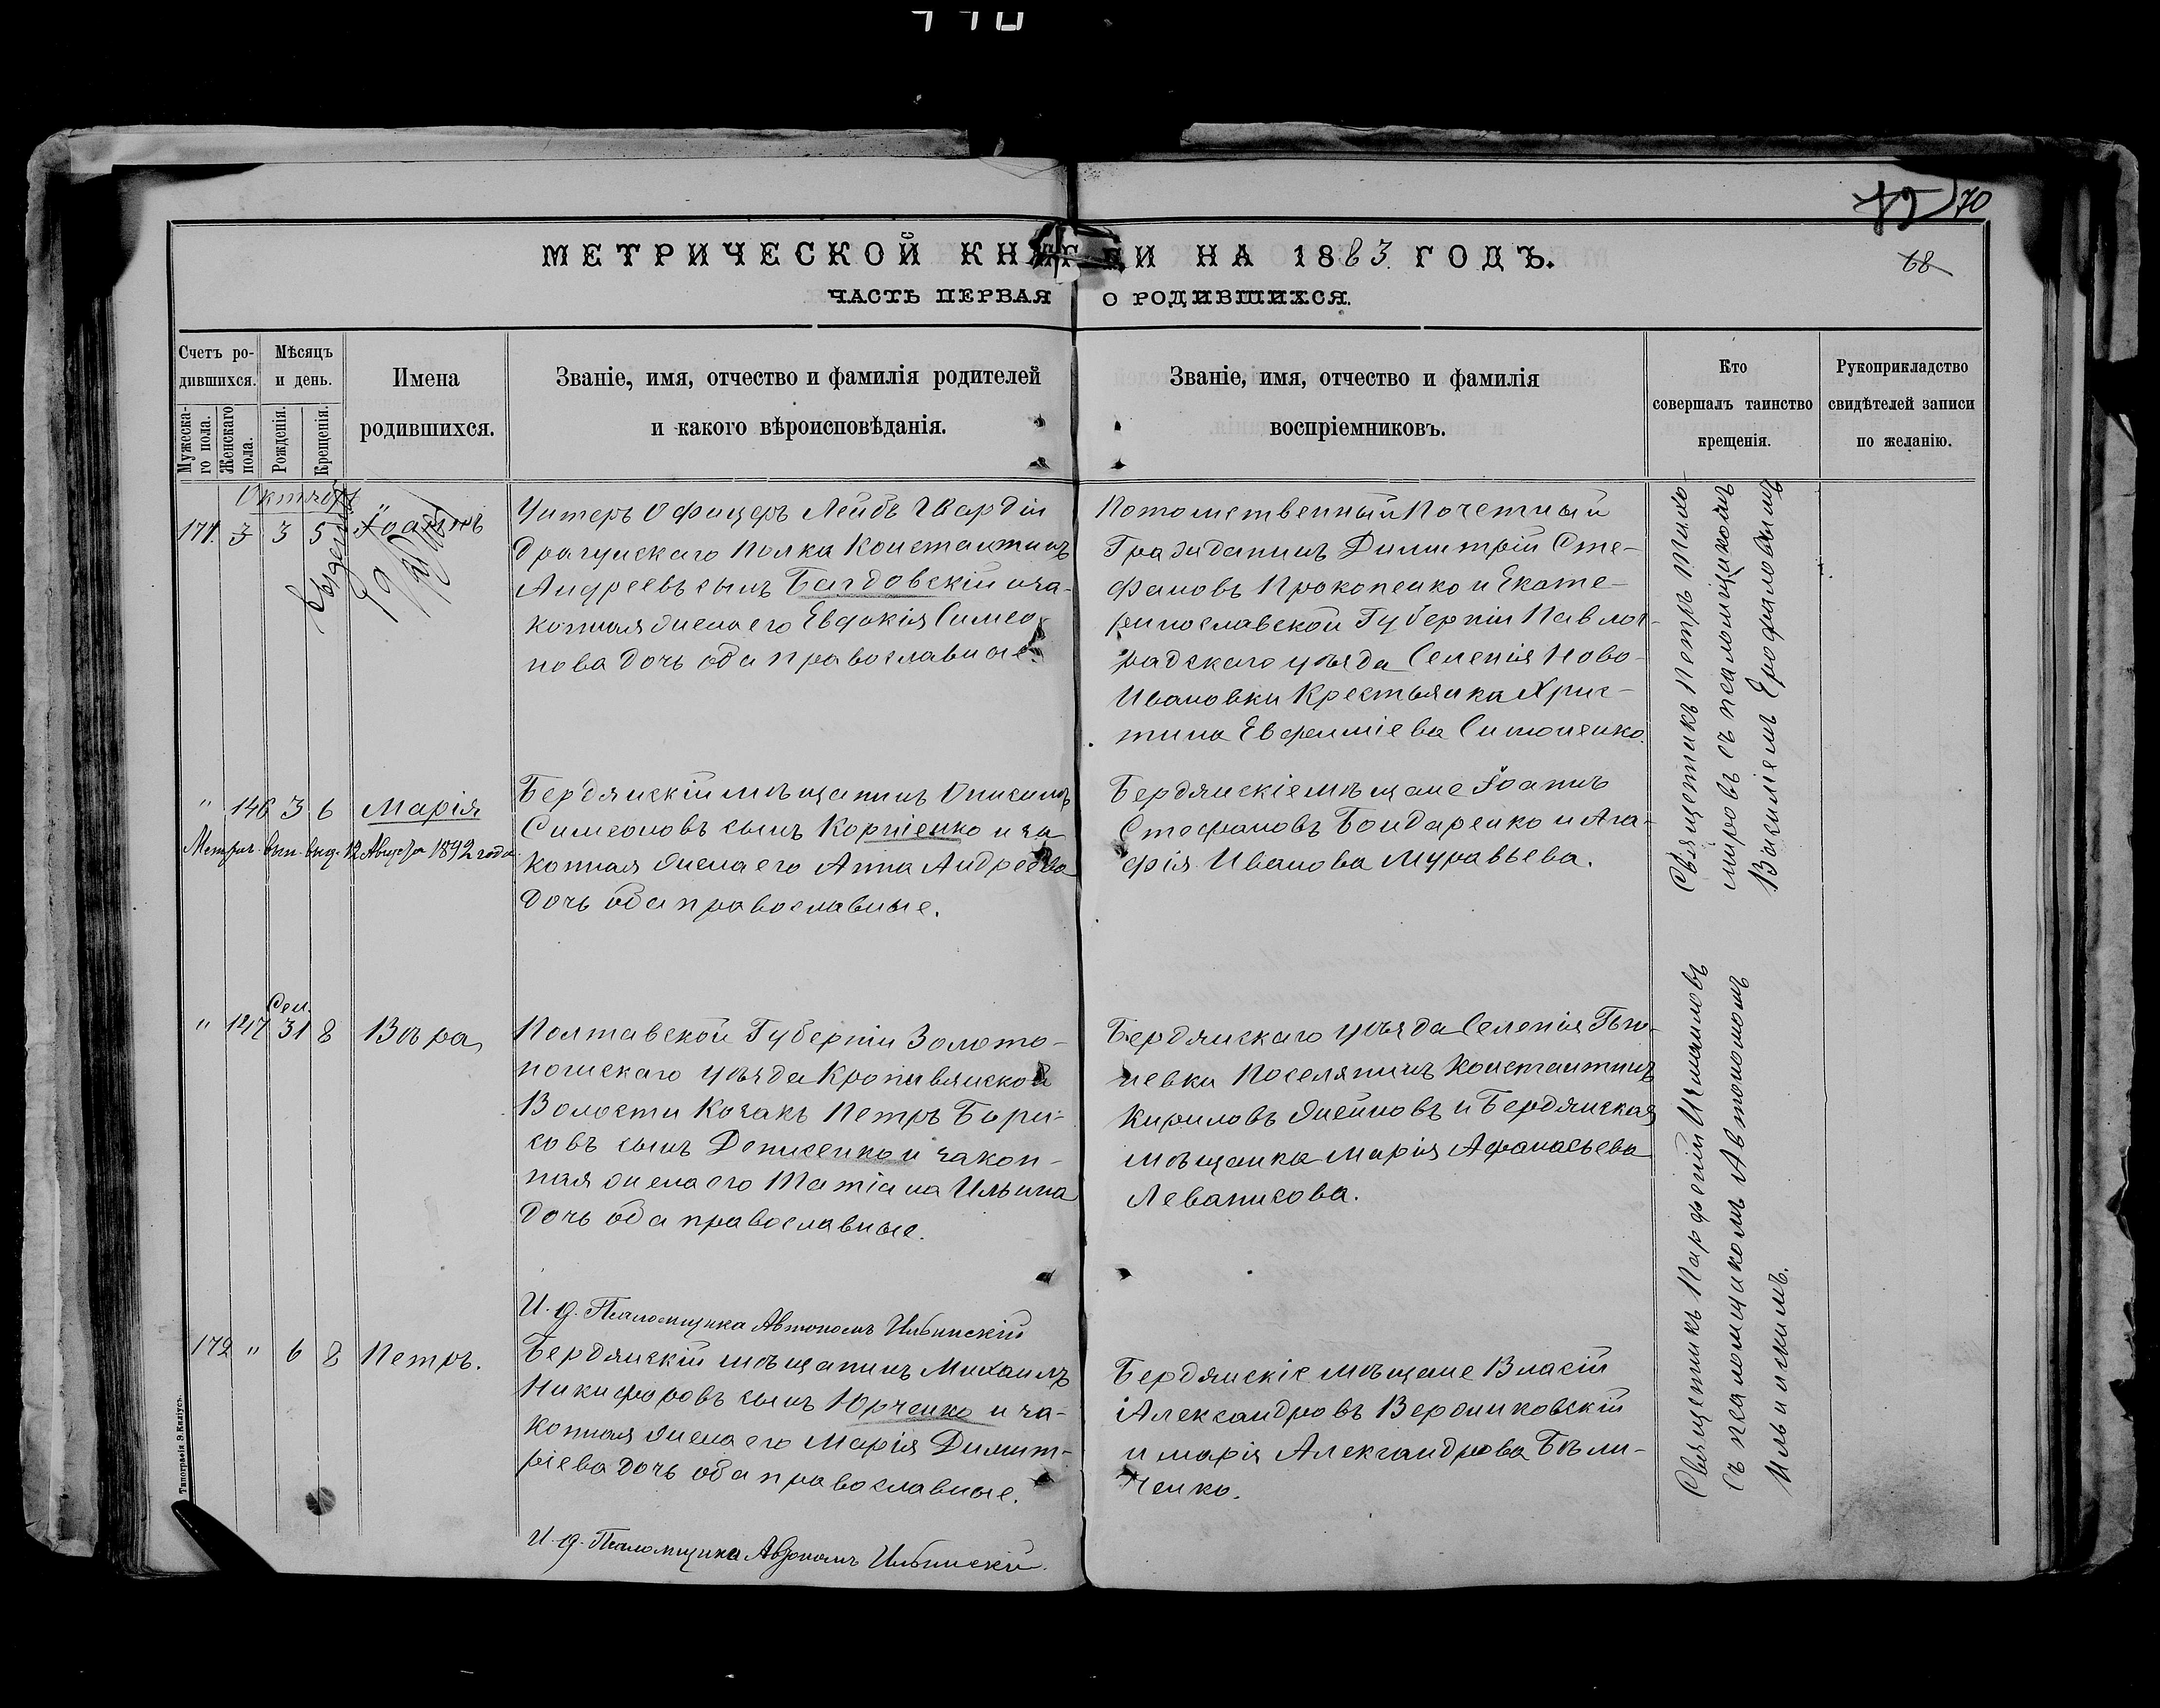 70
68
МЕТРИЧЕСКОЙ КНИГИ НА 1883 ГОДЪ.
ЧАСТЬ ПЕРВАЯ О РОДИВШИХСЯ.
Счетъ ро-
дившихся.
Мужеска-
го пола.
Женскаго
пола.
Мѣсяцъ
и день.
Рожденія.
Крещенія.
Имена
родившихся.
Званіе, имя, отчество и фамилія родителей
и какого вѣроисповѣданія.
Званіе, имя, отчество и фамилія
воспріемниковъ.
Кто
совершалъ таинство
крещенія.
Рукоприкладство
свидѣтелей записи
по желанію.
Октябрь
171. 3 5 Іоаннъ
Унтеръ Офицеръ Лейбъ Гвардіи
Драгунскаго Полка Константинъ
Андреевъ сынъ Багдовскій и за-
конная жена его Евдокія Симео-
нова дочь оба православные.
Потомственный Почетный
Гражданинъ Димитрій Сте-
фановъ Прокопенко и Екате-
ринославской Губерніи Павлог-
радскаго уѣзда Селенія Ново-
Ивановки Крестьянка Хрис-
тина Евфиміева Симоненко.
Священникъ Петръ Тихо-
мировъ съ псаломщикомъ
Василіемъ Ерофаловымъ
" 146 3 6 Марія
Метрич. вып. выд. 12 Августа 1892 года
Бердянскій мѣщанинъ Онисимъ
Симеоновъ сынъ Корніенко и за-
конная жена его Анна Андреева
дочь оба православные.
Бердянскіе мѣщане Іоаннъ
Стефановъ Бондаренко и Ага-
фія Иванова Муравьева.
Сен.
" 147 31 8 Вѣра
Полтавской Губерніи Золото-
ношскаго уѣзда Кропивянской
Волости Козакъ Петръ Бори-
совъ сынъ Денисенко и закон-
ная жена его Татіана Ильина
дочь оба православные.
И. д. Псаломщика Автономъ Ильинскій
Бердянскаго уѣзда Селенія
Поселянинъ Константинъ
Кириловъ Жейновъ и Бердянская
мѣщанка Марія Афанасьева
Леванисова.
Священникъ Парфеній Измаиловъ
съ псаломщикомъ Автономомъ
Ильинскимъ.
172 " 6 8 Петръ.
Бердянскій мѣщанинъ Михаилъ
Никифоровъ сынъ Юрченко и за-
конная жена его Марія Димит-
ріева дочь оба православные.
И. д. Псаломщика Автономъ Ильинскій.
Бердянскіе мѣщане Власій
Александровъ Верошковскій
и Марія Александрова Бѣли-
ченко.
Типографія Э. Килiусъ.